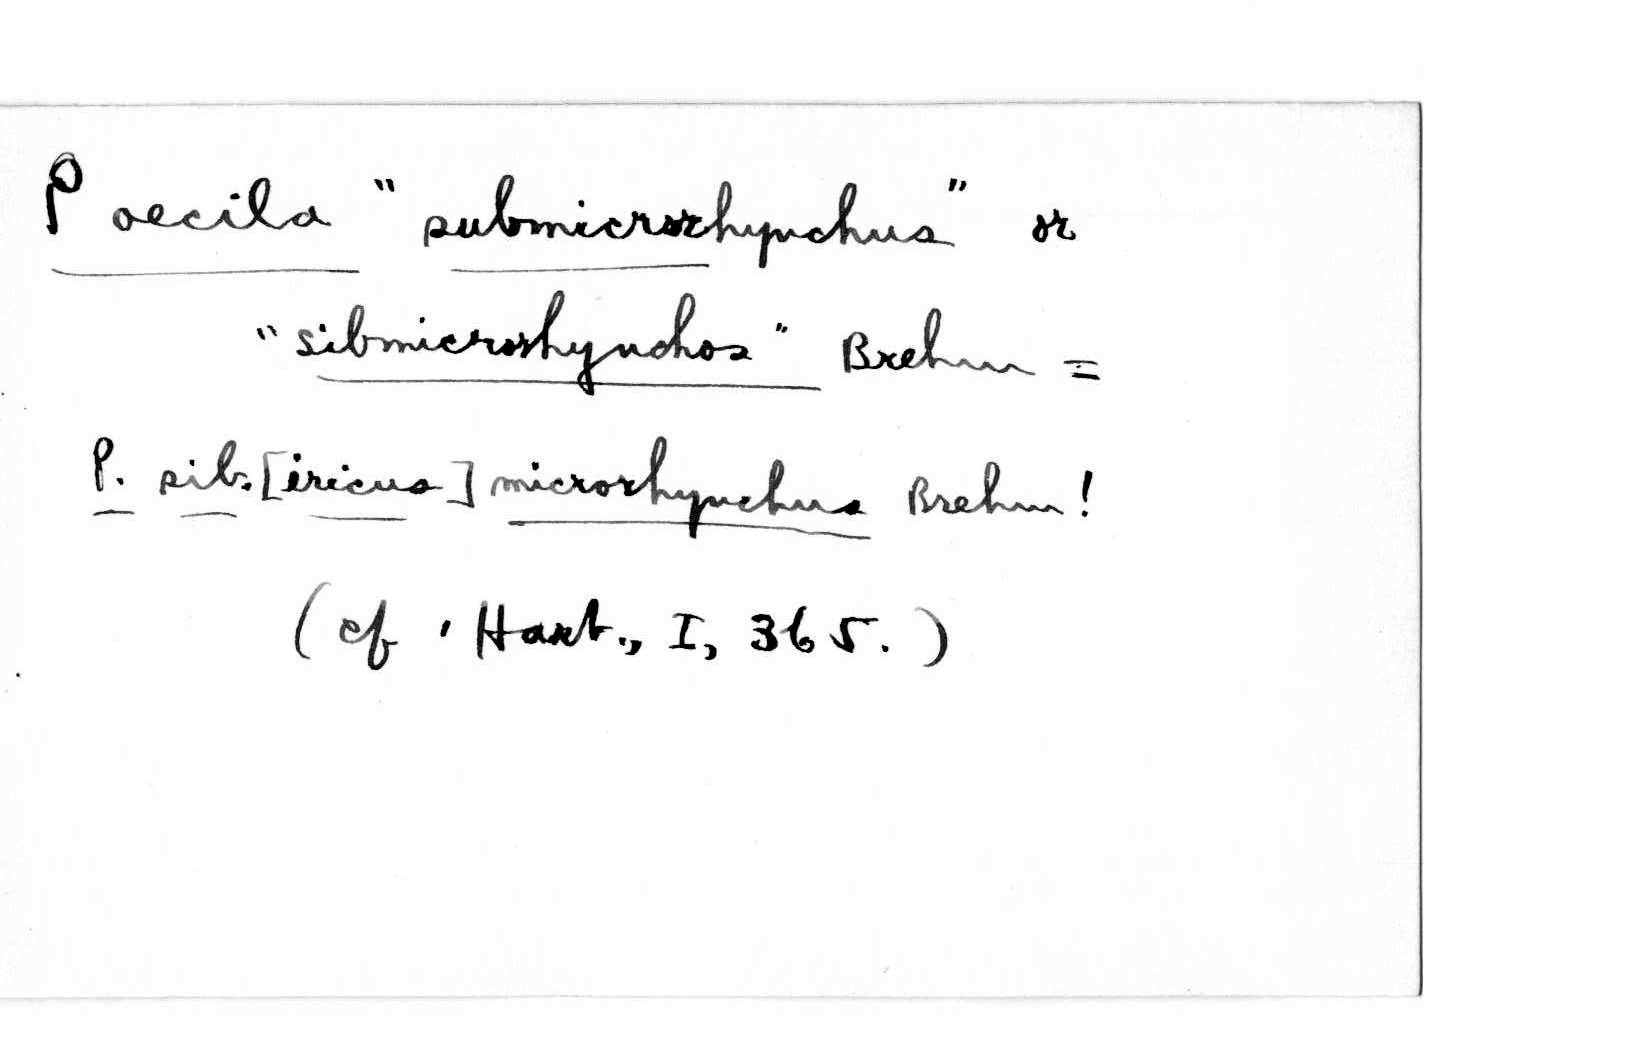 Poecila "submicrorhynchus" or
"sibmicrorhynchos" Brehm =
P. sib.[iricus] microrhynchus Brehm!
(cf. Hart., I, 365.)